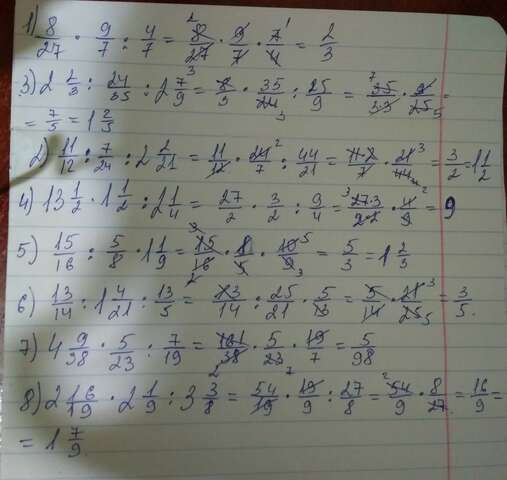 1) 8/27 · 9/7 : 4/7 = 8/27 · 9/7 · 7/4 = 2/3
3) 2 2/3 : 24/35 : 2 7/9 = 8/3 · 35/24 : 25/9 = 35/33 · 9/25 =
= 7/5 = 1 2/5
2) 11/12 : 7/24 : 2 2/21 = 11/12 · 24/7 : 44/21 = 11·2/7 · 21/44 = 3/2 = 1 1/2
4) 13 1/2 · 1 1/2 : 2 1/4 = 27/2 · 3/2 : 9/4 = 27·3/2·2 · 4/9 = 9
5) 15/16 : 5/8 · 1 1/9 = 15/16 · 8/5 · 10/9 = 5/3 = 1 2/3
6) 13/14 : 1 4/21 : 13/5 = 13/14 : 25/21 · 5/13 = 5/14 · 21/25 = 3/5.
7) 4 9/38 · 5/23 : 7/19 = 161/38 · 5/23 · 19/7 = 5/98
8) 2 16/19 · 2 1/9 : 3 3/8 = 54/19 · 19/9 : 27/8 = 54/9 · 8/27 = 16/9 =
= 1 7/9.